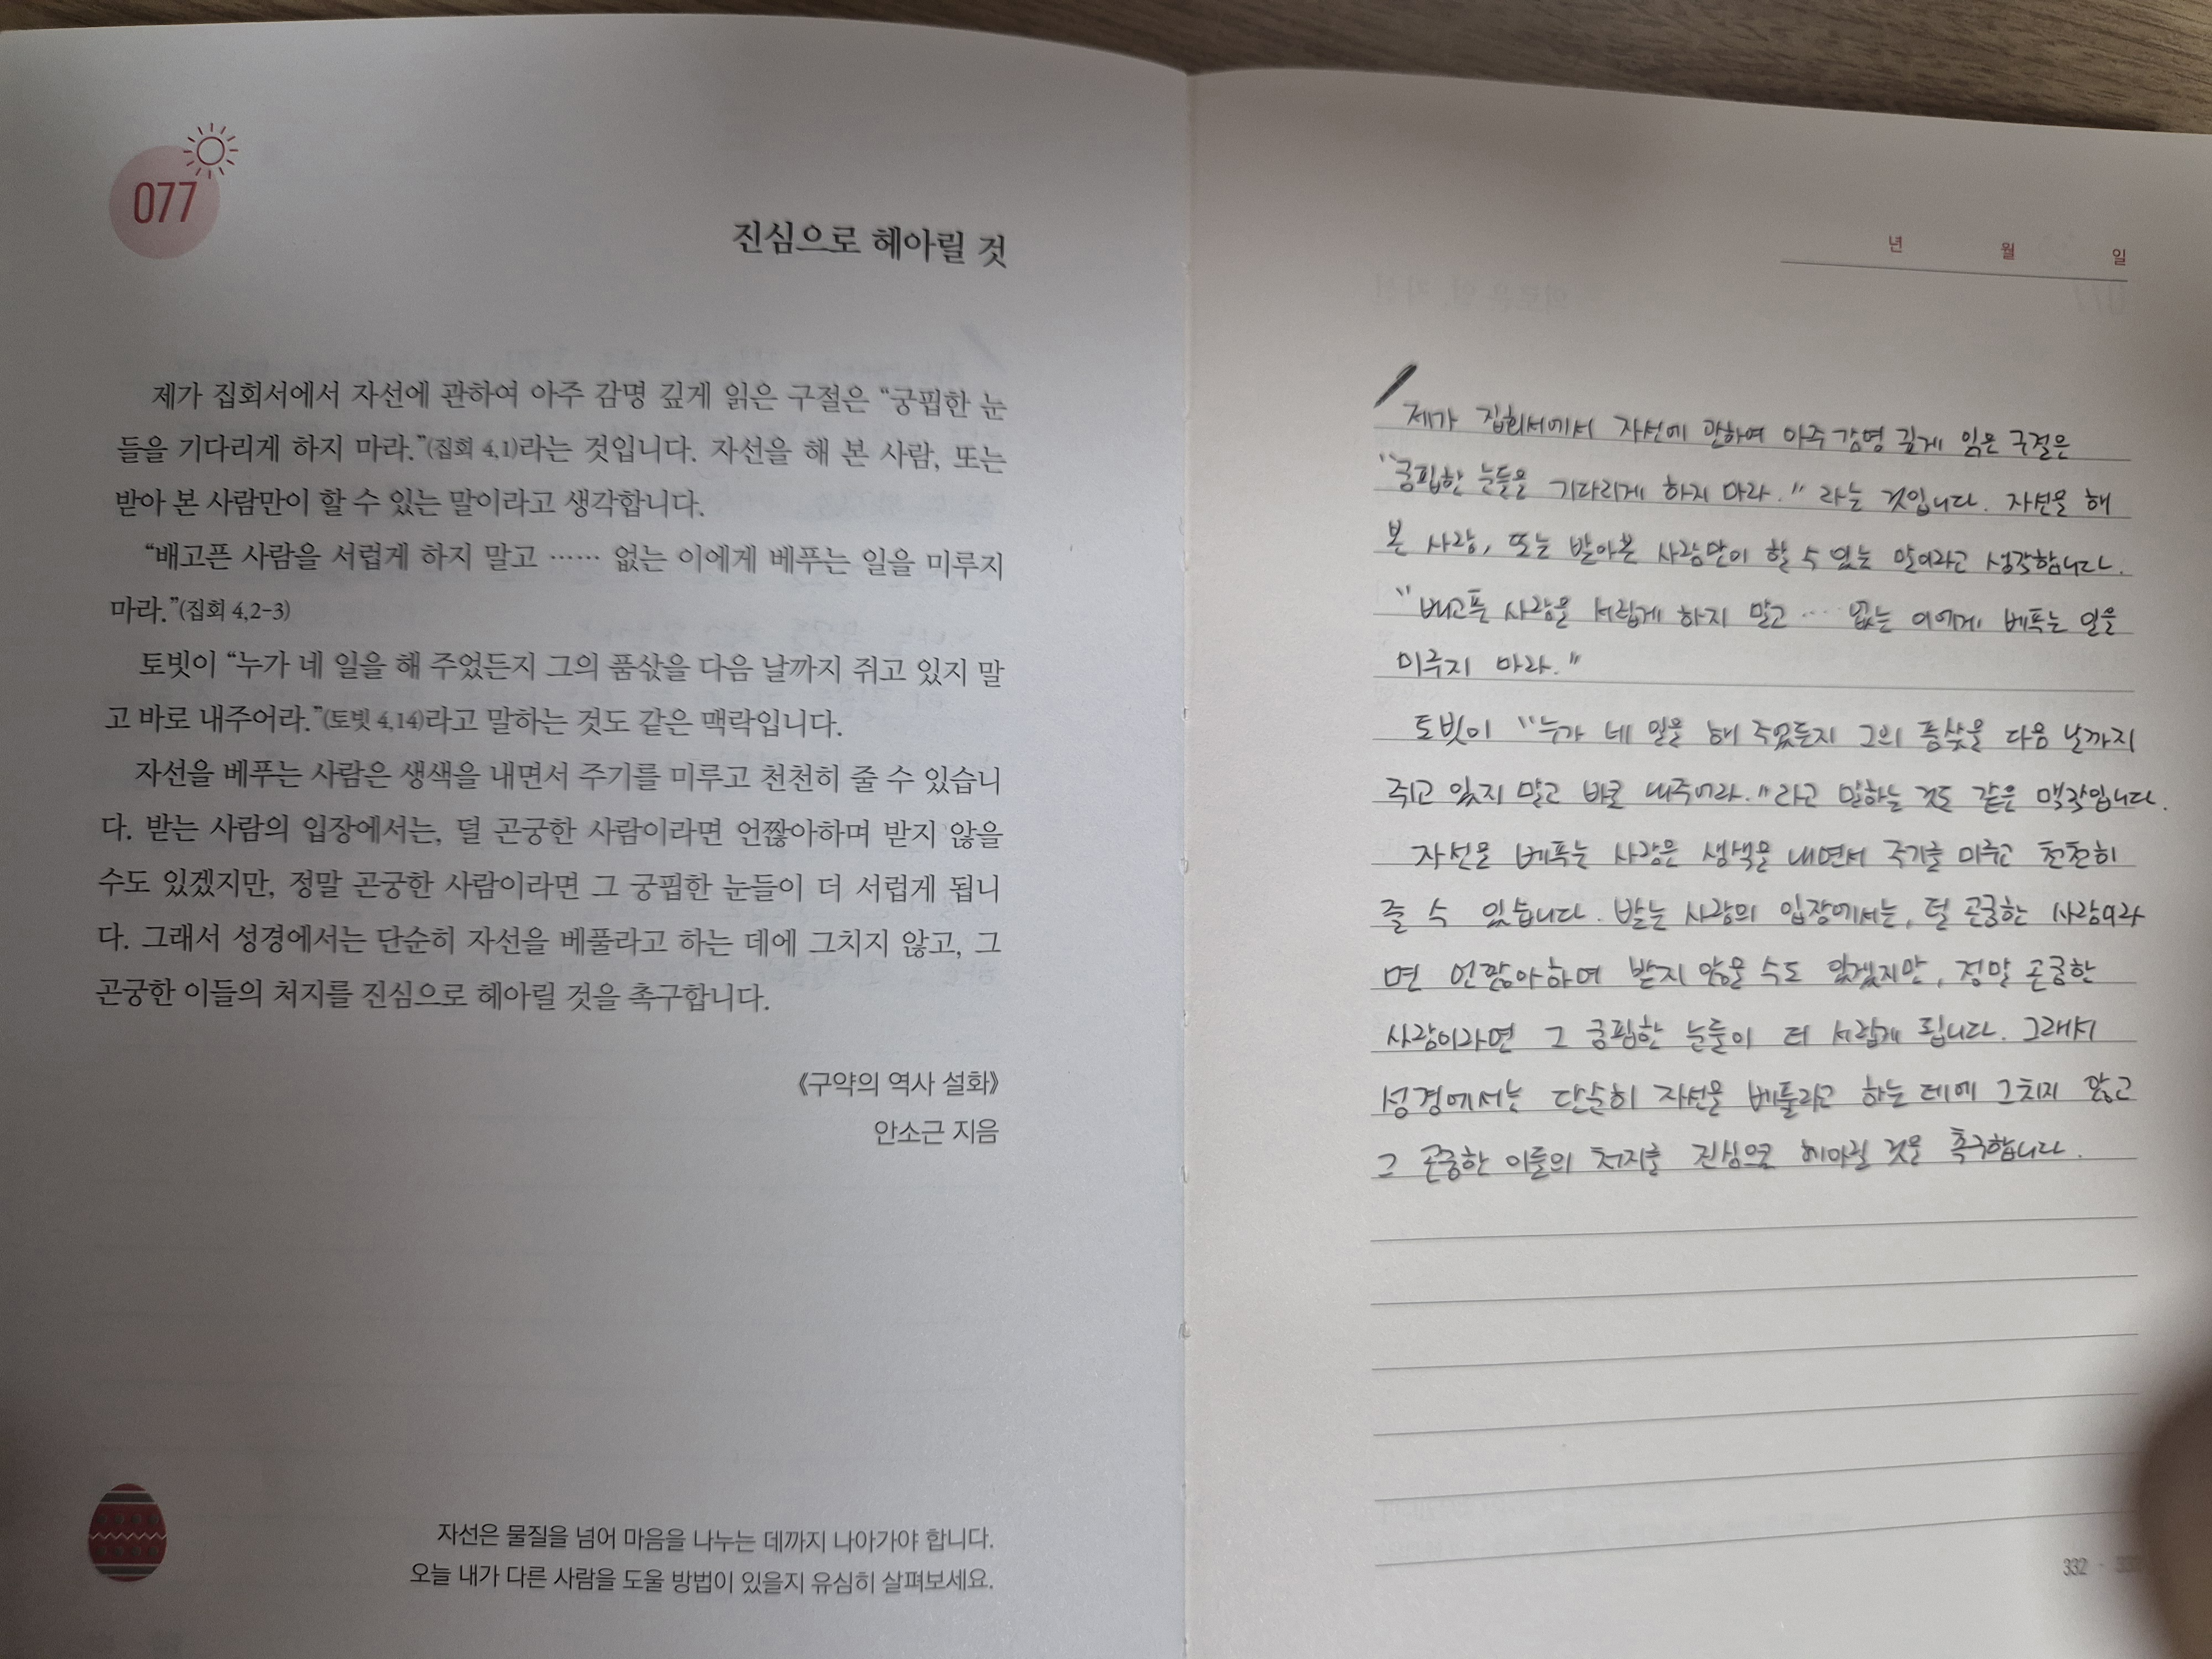 077
진심으로 헤아릴 것
제가 집회서에서 자선에 관하여 아주 감명 깊게 읽은 구절은 “궁핍한 눈
들을 기다리게 하지 마라.”(집회 4,1)라는 것입니다. 자선을 해 본 사람, 또는
받아 본 사람만이 할 수 있는 말이라고 생각합니다.
“배고픈 사람을 서럽게 하지 말고 …… 없는 이에게 베푸는 일을 미루지
마라.”(집회 4,2-3)
토빗이 “누가 네 일을 해 주었든지 그의 품삯을 다음 날까지 쥐고 있지 말
고 바로 내주어라.”(토빗 4,14)라고 말하는 것도 같은 맥락입니다.
자선을 베푸는 사람은 생색을 내면서 주기를 미루고 천천히 줄 수 있습니
다. 받는 사람의 입장에서는, 덜 곤궁한 사람이라면 언짢아하며 받지 않을
수도 있겠지만, 정말 곤궁한 사람이라면 그 궁핍한 눈들이 더 서럽게 됩니
다. 그래서 성경에서는 단순히 자선을 베풀라고 하는 데에 그치지 않고, 그
곤궁한 이들의 처지를 진심으로 헤아릴 것을 촉구합니다.
《구약의 역사 설화》
안소근 지음
자선은 물질을 넘어 마음을 나누는 데까지 나아가야 합니다.
오늘 내가 다른 사람을 도울 방법이 있을지 유심히 살펴보세요.
년 월 일
제가 집회서에서 자선에 관하여 아주 감명 깊게 읽은 구절은
“궁핍한 눈들을 기다리게 하지 마라.” 라는 것입니다. 자선을 해
본 사람, 또는 받아본 사람만이 할 수 있는 말이라고 생각합니다.
“배고픈 사람을 서럽게 하지 말고 …. 없는 이에게 베푸는 일을
미루지 마라.”
토빗이 “누가 네 일을 해 주었든지 그의 품삯을 다음 날까지
쥐고 있지 말고 바로 내주어라.”라고 말하는 것도 같은 맥락입니다.
자선을 베푸는 사람은 생색을 내면서 주기를 미루고 천천히
줄 수 있습니다. 받는 사람의 입장에서는, 덜 곤궁한 사람이라
면 언짢아하며 받지 않을 수도 있겠지만, 정말 곤궁한
사람이라면 그 궁핍한 눈들이 더 서럽게 됩니다. 그래서
성경에서는 단순히 자선을 베풀라고 하는 데에 그치지 않고
그 곤궁한 이들의 처지를 진심으로 헤아릴 것을 촉구합니다.
332